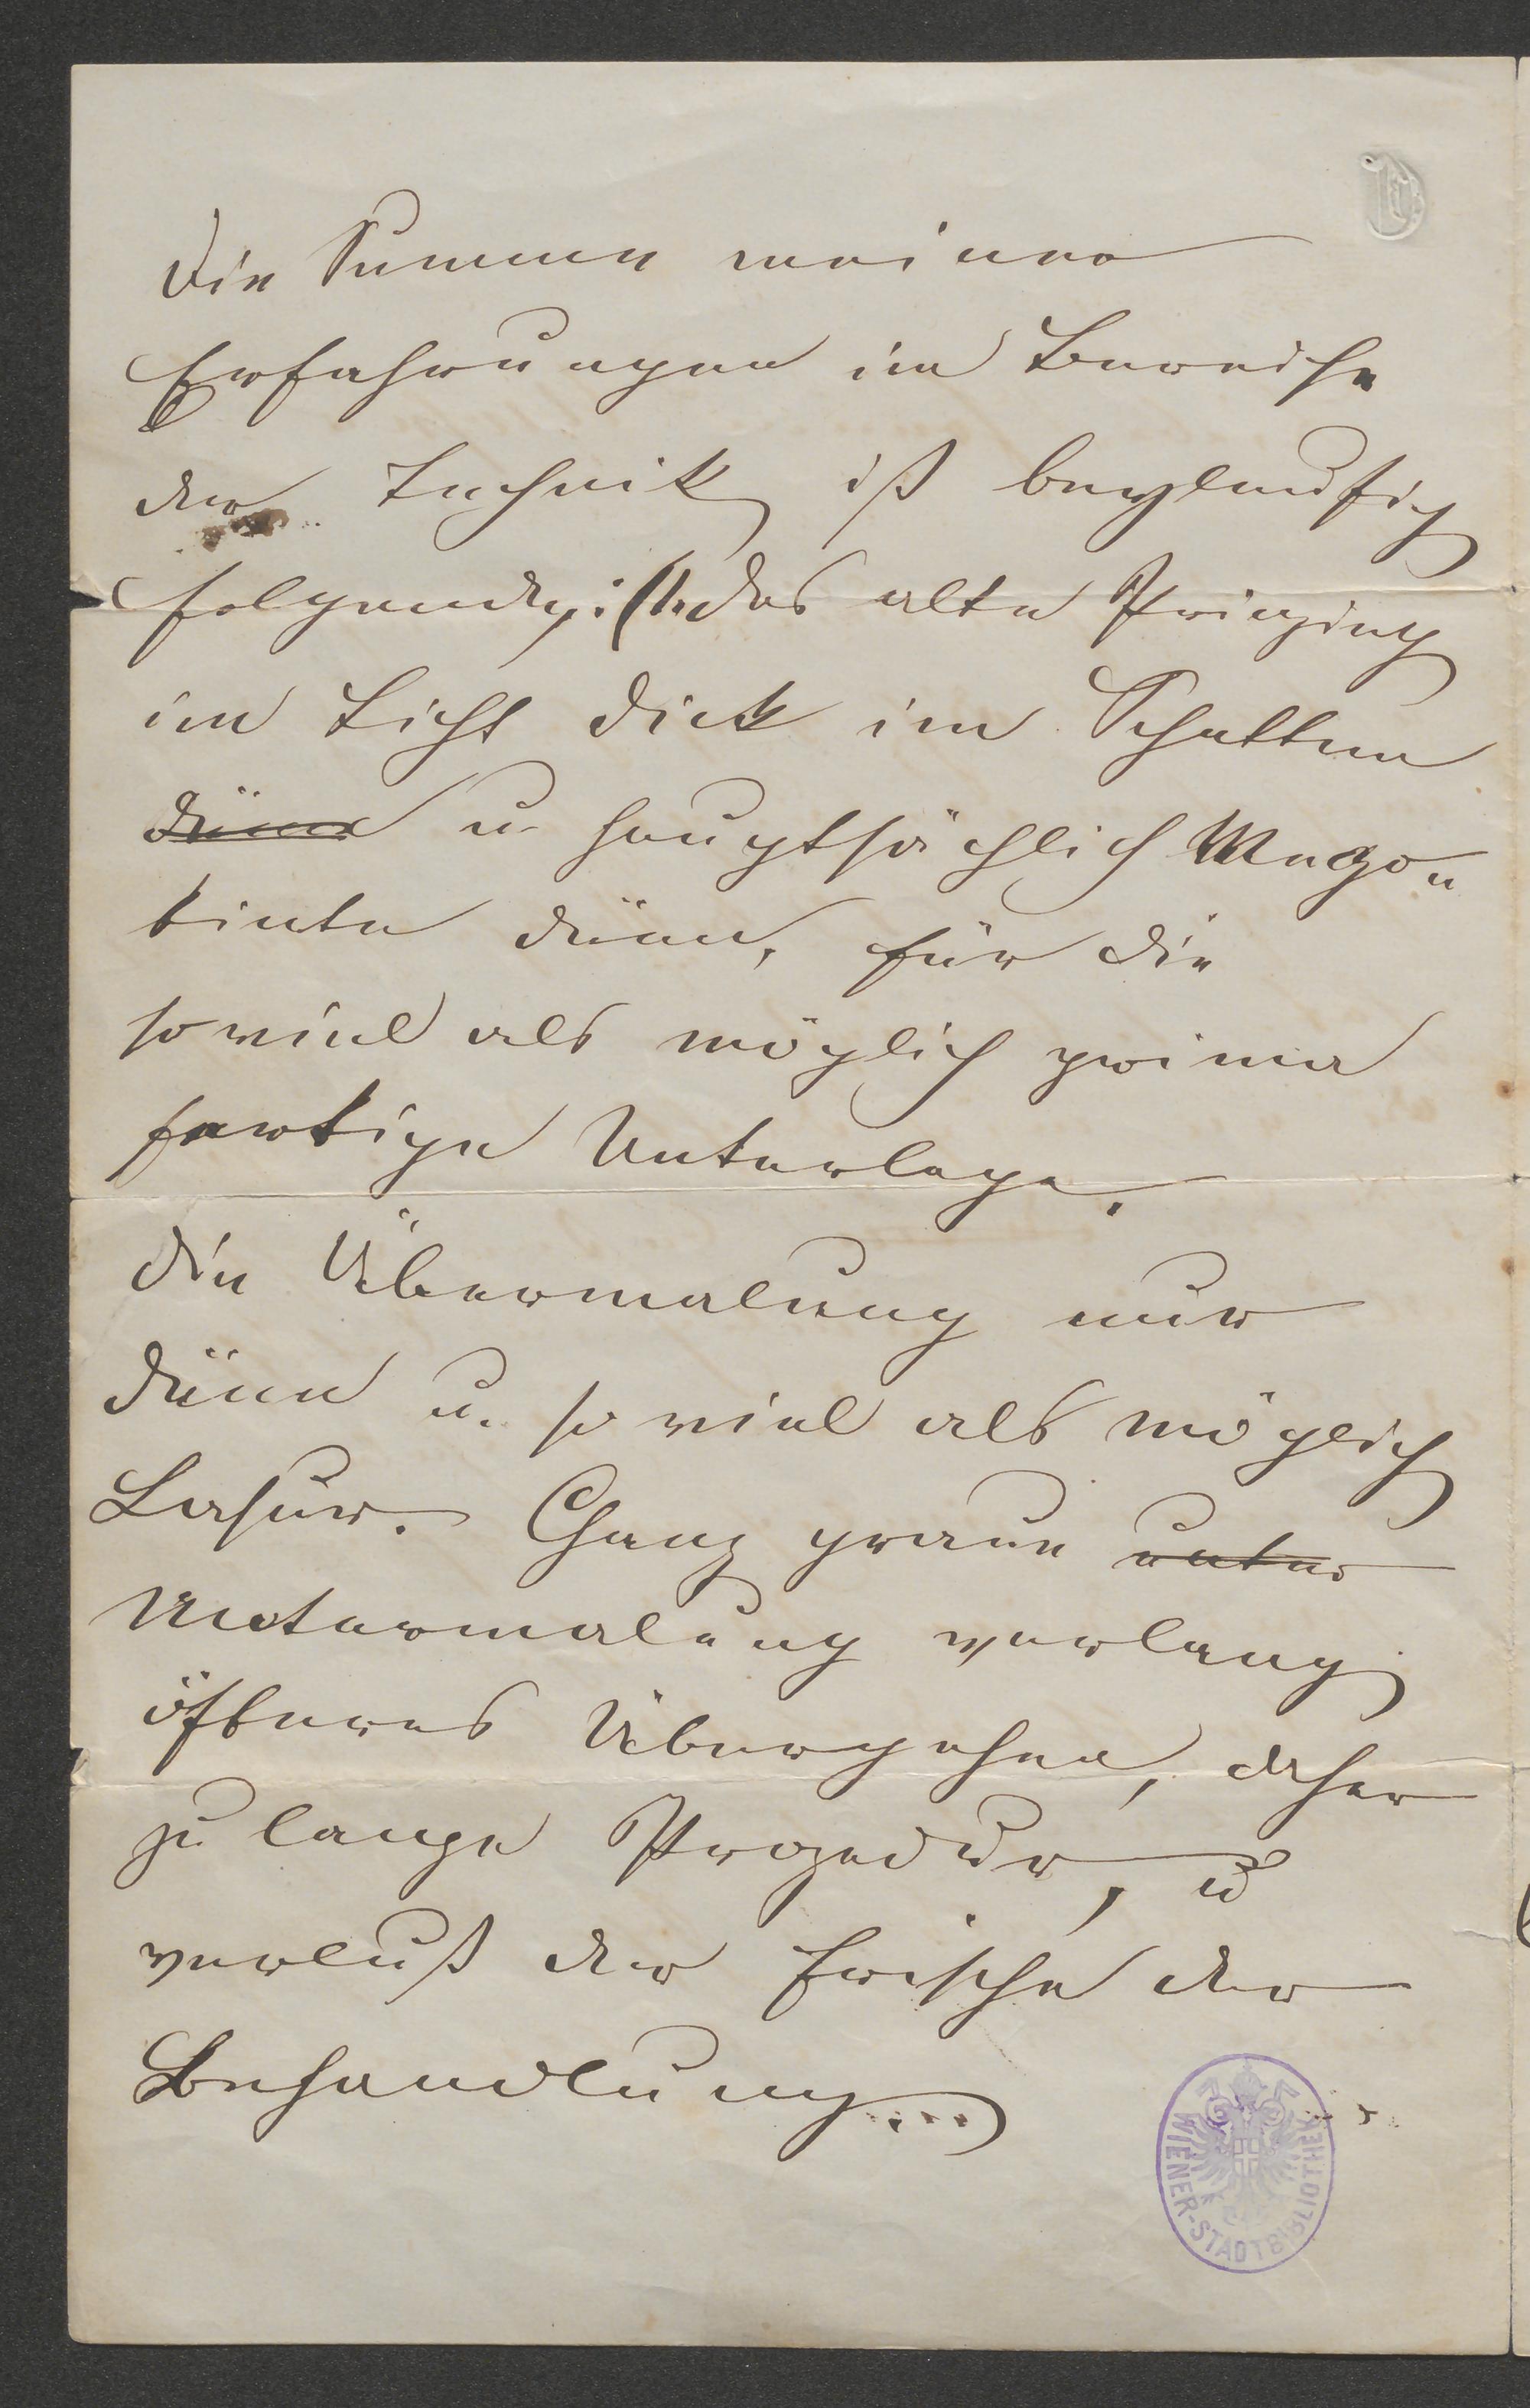 Die Summe meiner
Erfahrungen im Bereiche
der Technik ist beyläufig
folgende: (1. das alte Prinzip
im Licht dick im Schatten
dünn u. hauptsächlich
tinte dünn, für die
so viel als möglich prima
fertige Unterlage.
Die Übermalung nur
dünn u. so viel als möglich
Lasur. Ganz graue unter
Untermalung verlang
öfteres Übergehen, daher
zu lange Prozedur, u
verlust der Frische der
Behandlung...)
WIENER-STADTBIBLIOTHEK